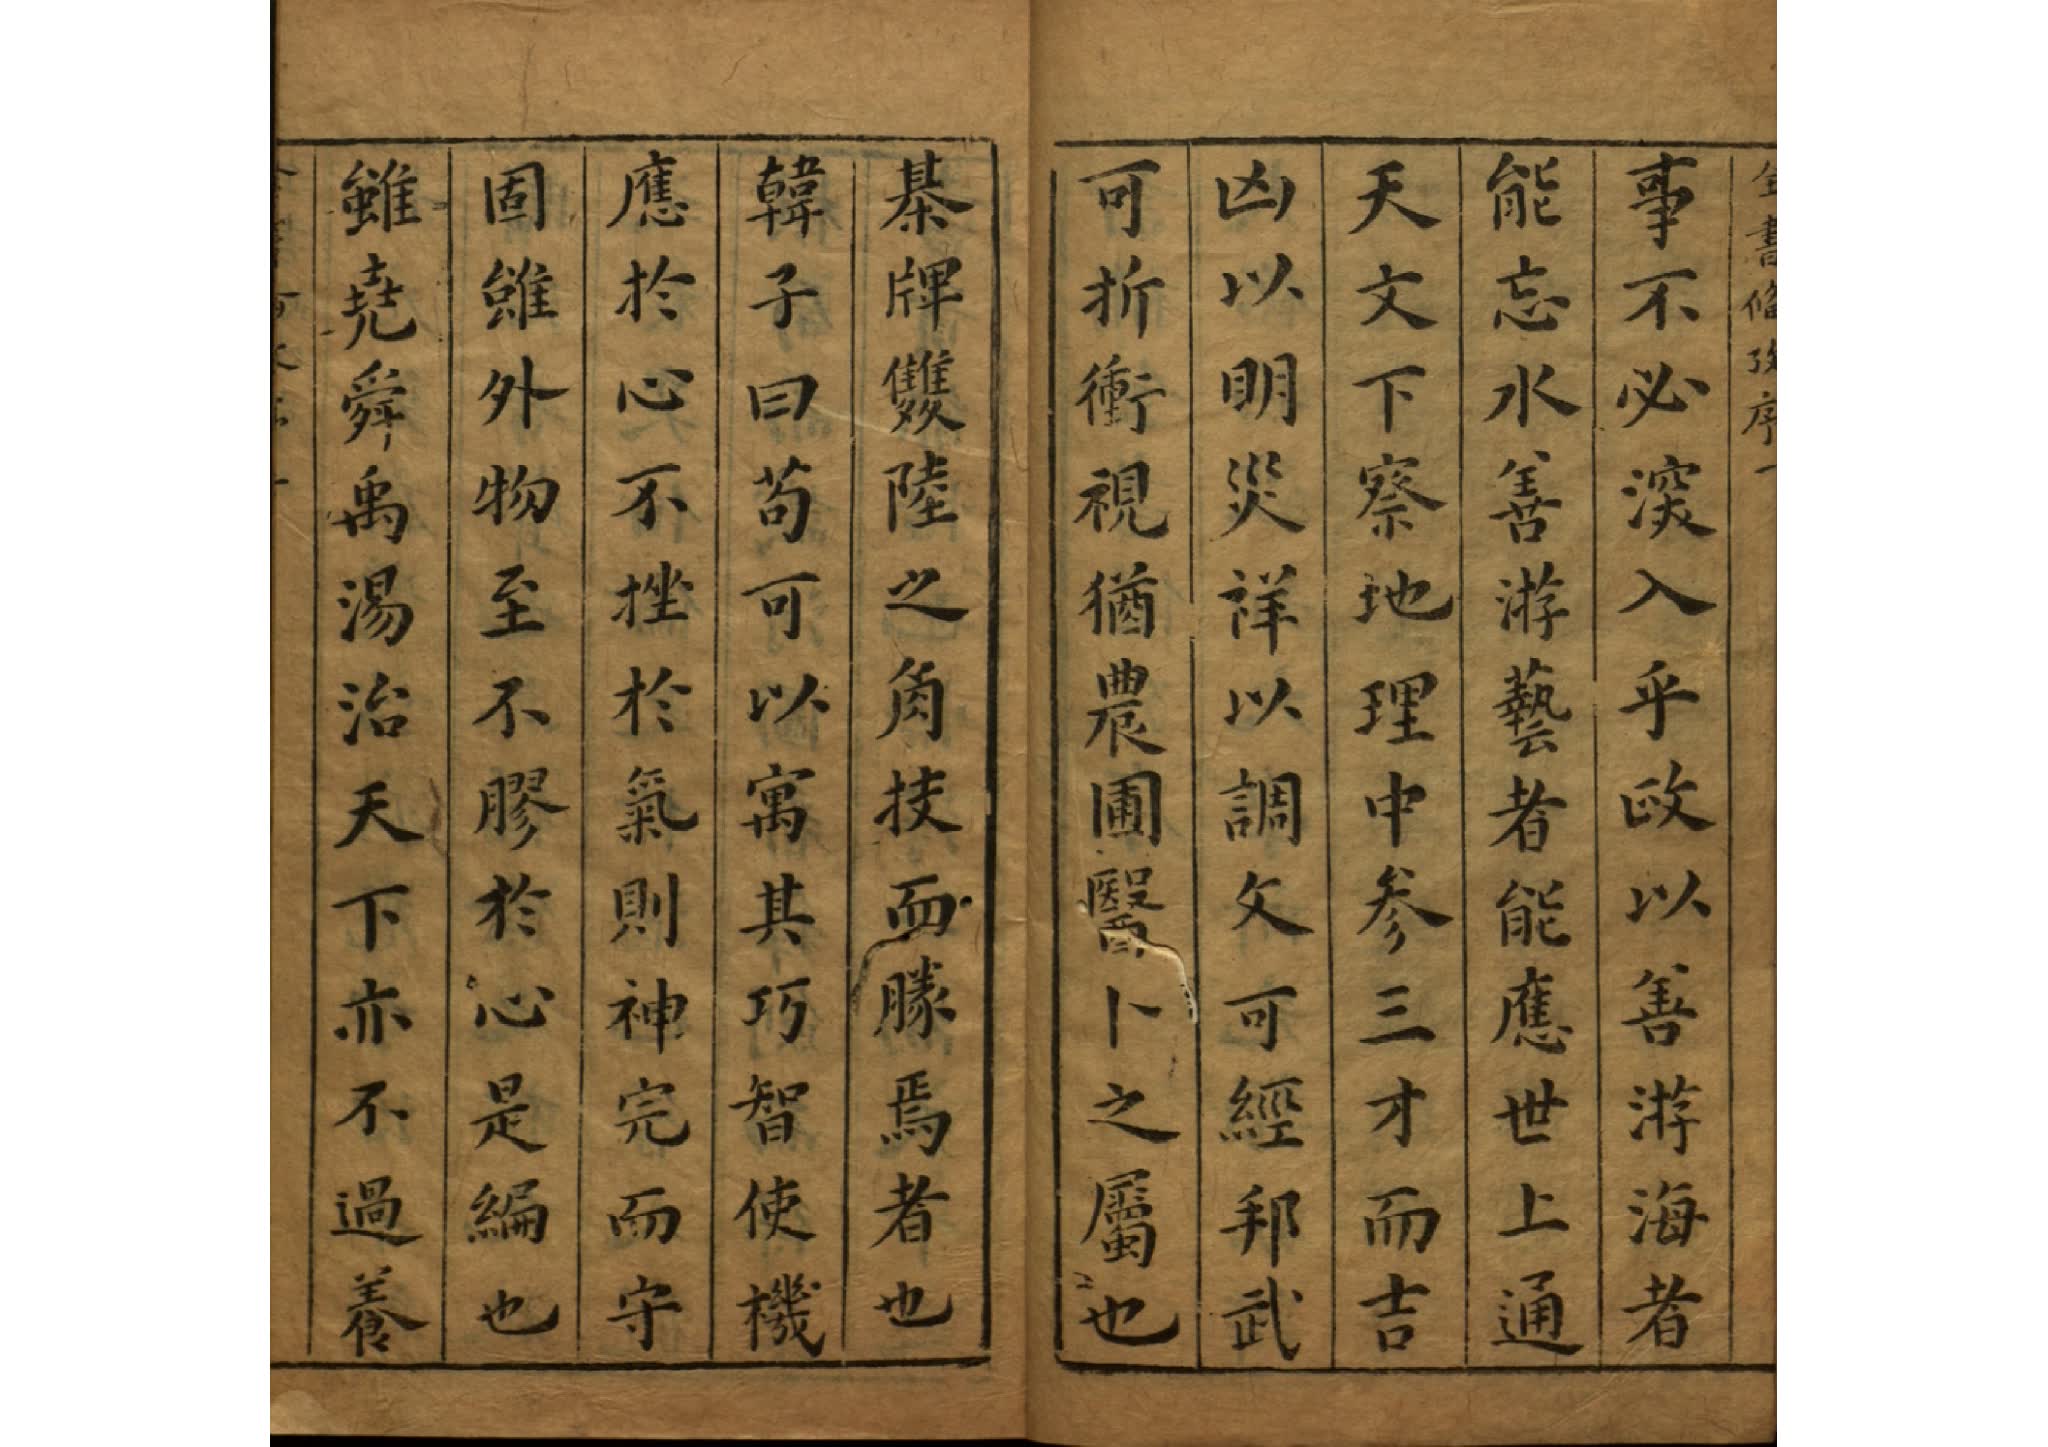 全書備攷序一
事不必深入乎政以善游海者
能忘水善游藝者能應世上通
天文下察地理中參三才而吉
凶以明災祥以調文可經邦武
可折衝視猶農圃醫卜之屬也
棊牌雙陸之角技而勝焉者也
韓子曰苟可以寓其巧智使機
應於心不挫於氣則神完而守
固雖外物至不膠於心是編也
雖堯舜禹湯治天下亦不過養